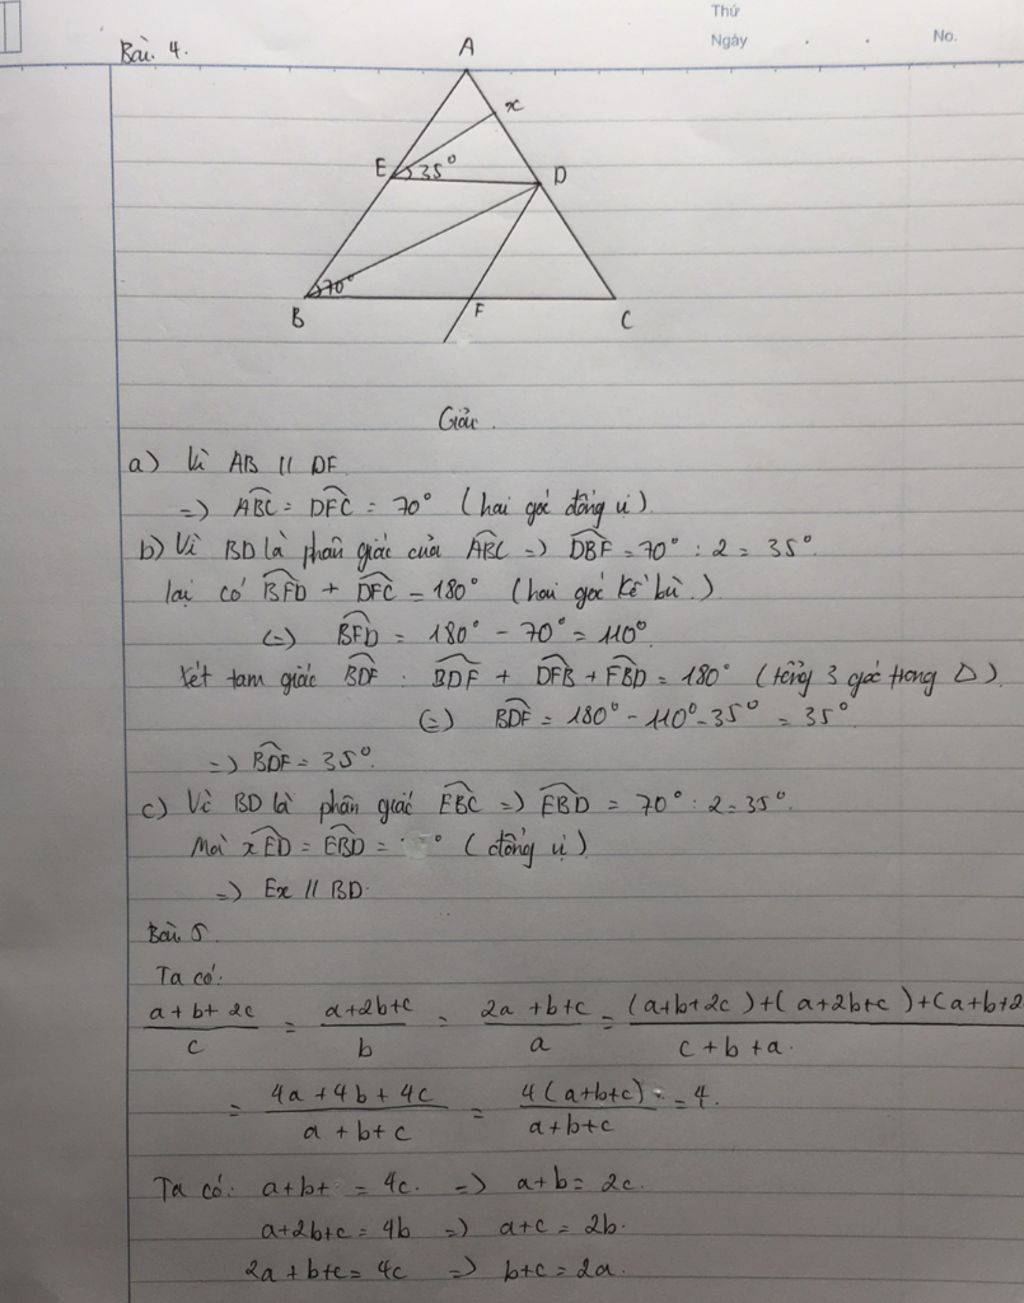 Thứ
Ngày . . No.
Bài 4.
A
x
E 35° D
B 70° F C
Giải.
a) Vì AB // DF
=> ABC = DFC = 70° (hai góc đồng vị).
b) Vì BD là phân giác của ABC => DBF = 70° : 2 = 35°.
lại có BFD + DFC = 180° (hai góc kề bù.)
(=) BFD = 180° - 70° = 110°.
Xét tam giác BDF : BDF + DFB + FBD = 180° (tổng 3 góc trong Δ).
(=) BDF = 180° - 110° - 35° = 35°.
=> BDF = 35°.
c) Vì BD là phân giác EBC => EBD = 70° : 2 = 35°.
Mà xED = EBD = ° (đồng vị)
=> Ex // BD.
Bài 5.
Ta có:
(a + b + 2c)/c = (a + 2b + c)/b = (2a + b + c)/a = ((a+b+2c) + (a+2b+c) + (a+b+2)/(c + b + a).
= (4a + 4b + 4c)/(a + b + c) = 4(a+b+c)/(a+b+c) = 4.
Ta có: a+b+ = 4c. => a+b = 2c.
a+2b+c = 4b => a+c = 2b.
2a+b+c = 4c => b+c = 2a.